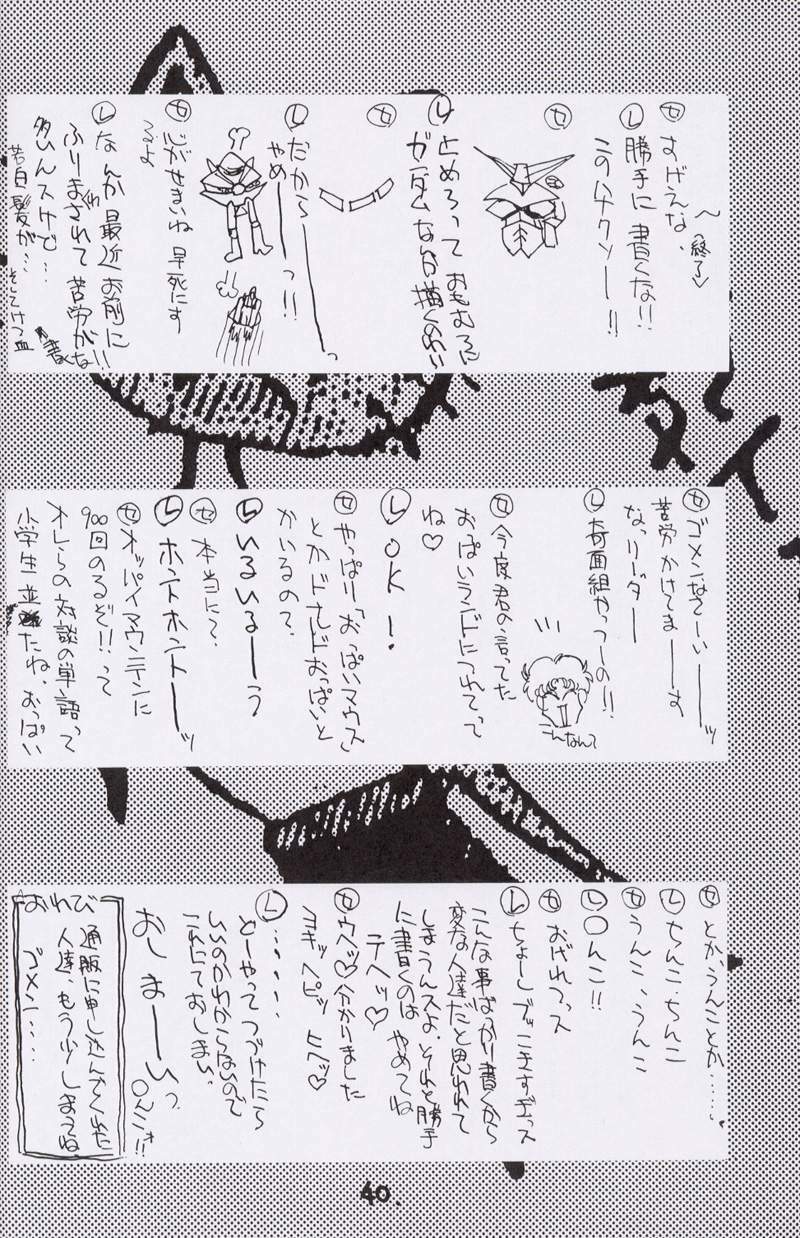 セ すげえな、
〜終了♡
レ 勝手に書くな!!
このハナクソー!!
セ
レ 止めろって おもむろに
ガンダムなんか描くのわい
セ
レ だからーーーーっ
やめーーっ!!
セ 心がせまいね 早死にす
るよ
レ なんか最近お前に
ふりまわされて苦労がな!!
多いんスけど…
若白髪が…
そしてけつ血
セ ゴメンなさーいーーッ
苦労かけてまーーす
なっリーダー
レ 奇面組やっつーの!!
こんなんで
セ 今度君の、言ってた
おっぱいランドにつれてって
ね♡
レ OK!
セ やっぱり「おっぱいマウス」
とかドナルドおっぱいと
かいるの?
レ いるいるーーう
セ 本当に?
レ ホントホントーーッ
セ オッパイマウンテンに
900回のるぞ!!って
オレらの対談の単語って
小学生並みだね、おっぱい
セ とかうんことか……
レ ちんこ、ちんこ
セ うんこ、うんこ
レ 〇んこ!!
セ おげれつっス
レ ちょーしブッこきすぎっス
こんな事ばっかり書くから
変な人達だと思われて
しまうんスよ、それと勝手
に書くのはやめてね
テヘッ♡
セ ウヘッ♡分かりました
ヨキッヘピッヒヘッ♡
レ ……
どーやってつづけたら
いいのかわからないので
これにておしまい。
おしまーいっ
〇んこ!!
おわび
通販に申し込んでくれた
人達、もう少しまってね
ゴメン…
40.